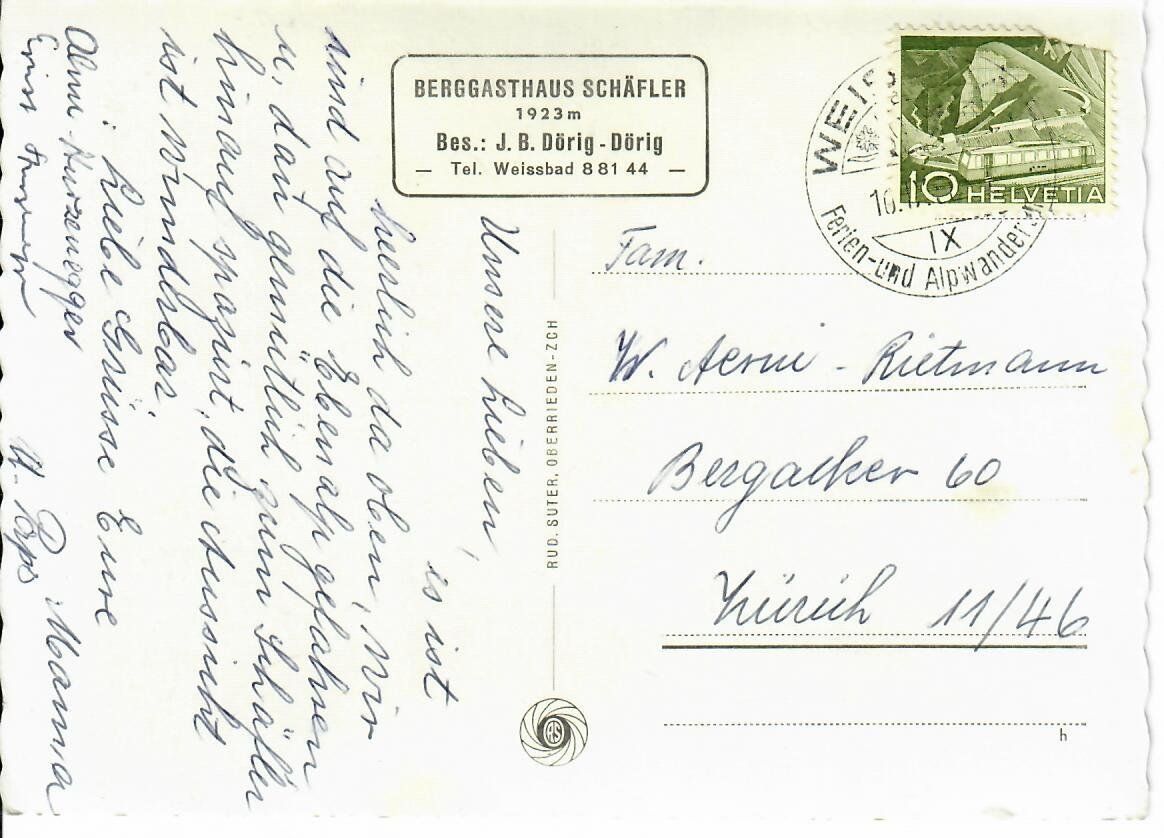 BERGGASTHAUS SCHÄFLER
1923 m
Bes.: J. B. Dörig - Dörig
— Tel. Weissbad 8 81 44 —
10 HELVETIA
WEIS
10.
IX
Ferien- und Alpwander
Unsere Lieben,
es ist
herrlich da oben, wir
sind auf die Ebenalp gefahren
u, dann gemütlich zum Schäfler
hinauf spaziert, die Aussicht
ist wunderbar.
Liebe Grüsse Eure
U. Paps Mamma
RUD. SUTER, OBERRIEDEN-ZCH
RS
Fam.
W. Aerni - Rietmann
Bergacker 60
Zürich 11/46
h